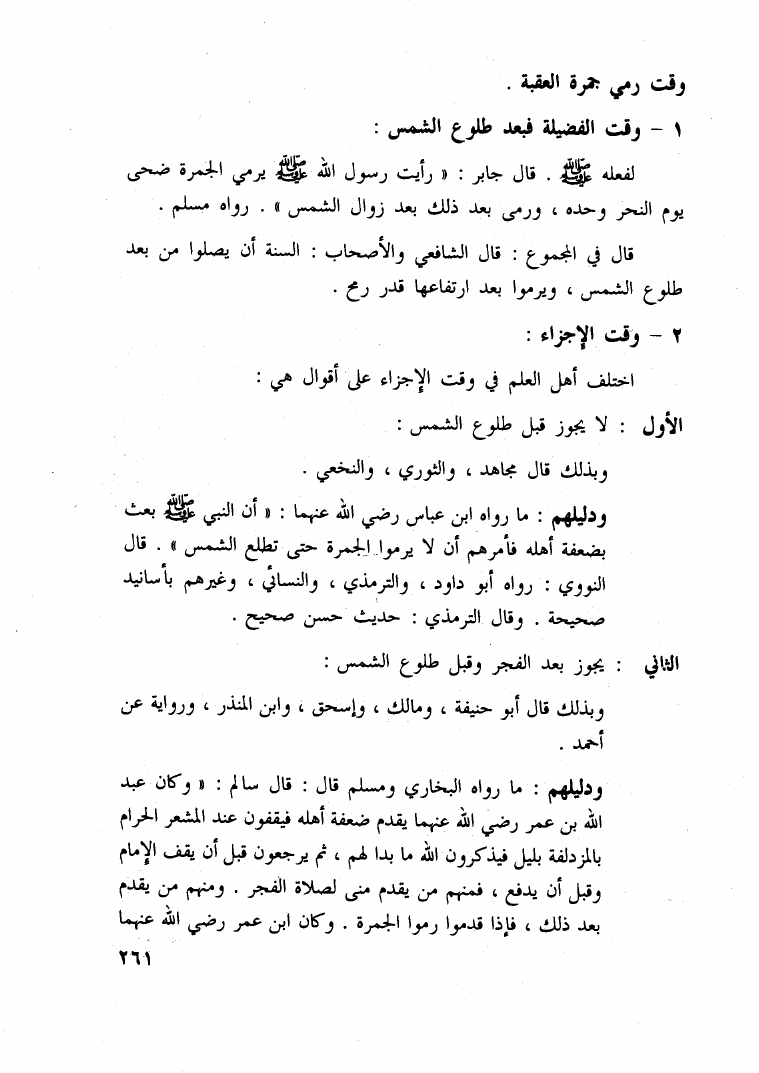 وقت رمي جمرة العقبة .
١ – وقت الفضيلة فبعد طلوع الشمس :
لفعله ﷺ . قال جابر : « رأيت رسول الله ﷺ يرمي الجمرة ضحى
يوم النحر وحده ، ورمى بعد ذلك بعد زوال الشمس » . رواه مسلم .
قال في المجموع : قال الشافعي والأصحاب : السنة أن يصلوا من بعد
طلوع الشمس ، ويرموا بعد ارتفاعها قدر رمح .
٢ – وقت الإجزاء :
اختلف أهل العلم في وقت الإجزاء على أقوال هي :
الأول : لا يجوز قبل طلوع الشمس :
وبذلك قال مجاهد ، والثوري ، والنخعي .
ودليلهم : ما رواه ابن عباس رضي الله عنهما : « أن النبي ﷺ بعث
بضعفة أهله فأمرهم أن لا يرموا الجمرة حتى تطلع الشمس » . قال
النووي : رواه أبو داود ، والترمذي ، والنسائي ، وغيرهم بأسانيد
صحيحة . وقال الترمذي : حديث حسن صحيح .
الثاني : يجوز بعد الفجر وقبل طلوع الشمس :
وبذلك قال أبو حنيفة ، ومالك ، وإسحق ، وابن المنذر ، ورواية عن
أحمد .
ودليلهم : ما رواه البخاري ومسلم قال : قال سالم : « وكان عبد
الله بن عمر رضي الله عنهما يقدم ضعفة أهله فيقفون عند المشعر الحرام
بالمزدلفة بليل فيذكرون الله ما بدا لهم ، ثم يرجعون قبل أن يقف الإمام
وقبل أن يدفع ، فمنهم من يقدم منى لصلاة الفجر . ومنهم من يقدم
بعد ذلك ، فإذا قدموا رموا الجمرة . وكان ابن عمر رضي الله عنهما
٢٦١